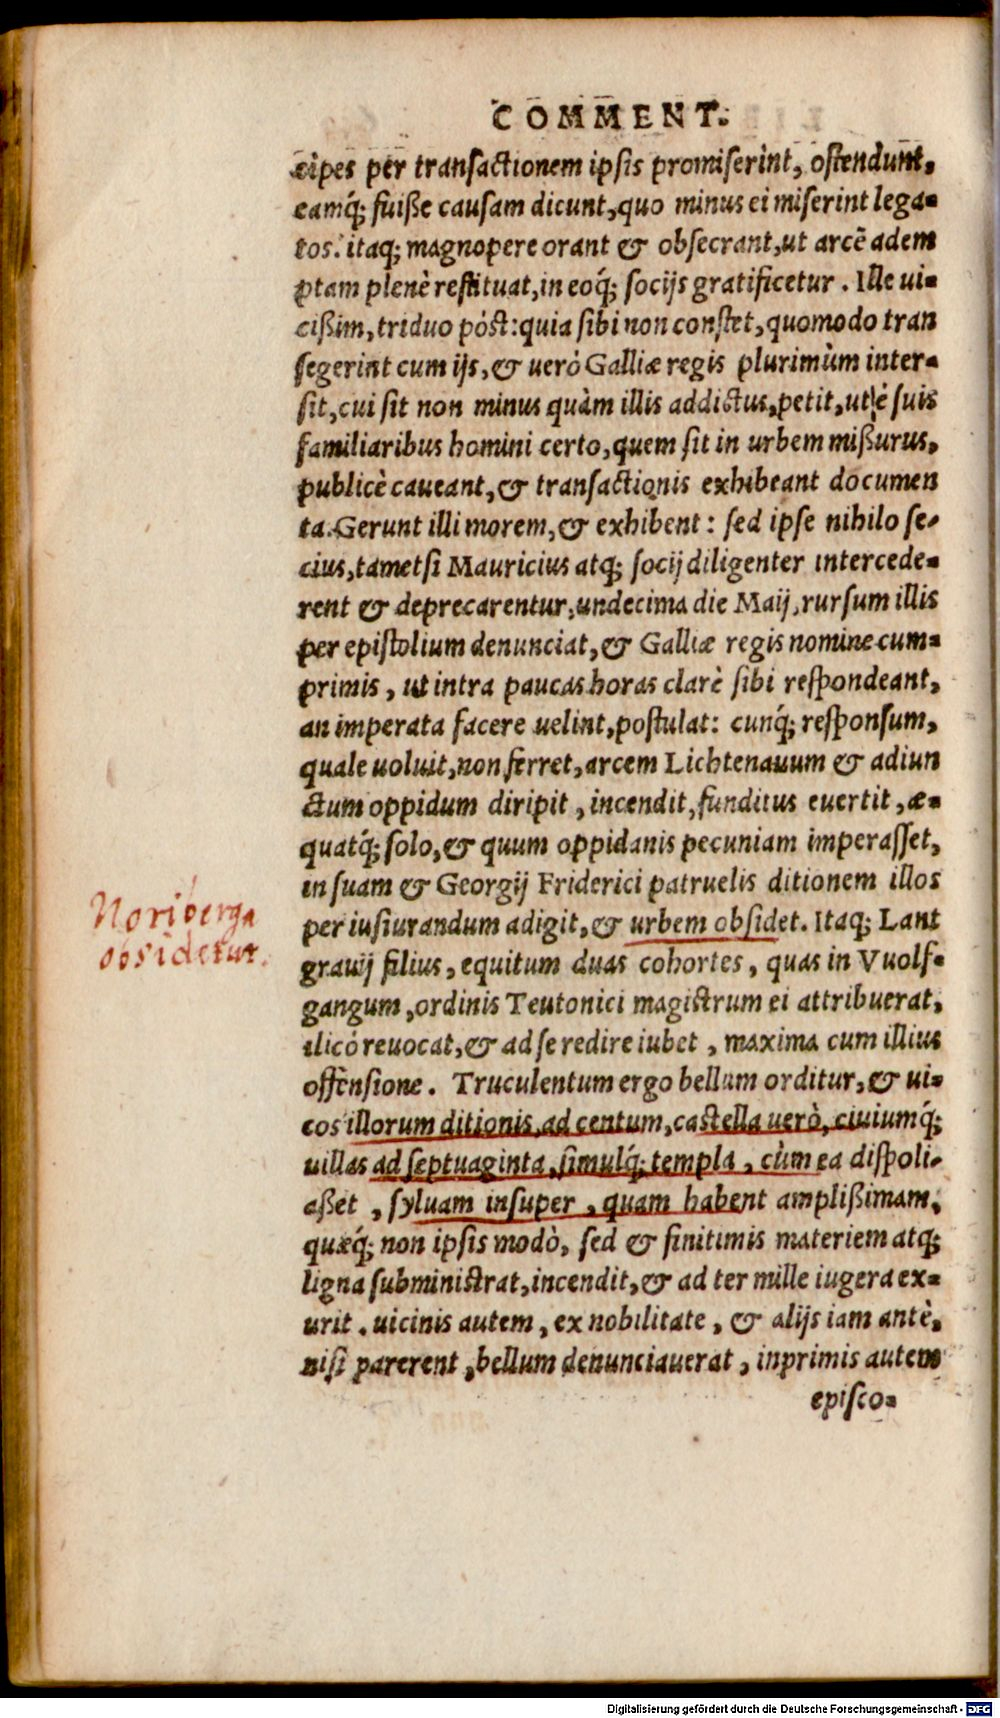 COMMENT.
cipes per transactionem ipsis promiserint, ostendunt,
eamq́; fuiße causam dicunt, quo minus ei miserint lega-
tos. itaq; magnopere orant & obsecrant, ut arcē adem
ptam plenè restituat, in eoq́; socijs gratificetur. Ille ui-
cißim, triduo pòst: quia sibi non constet, quomodo tran
segerint cum ijs, & uerò Galliæ regis plurimùm inter-
sit, cui sit non minus quàm illis addictus, petit, ut è suis
familiaribus homini certo, quem sit in urbem mißurus,
publicè caueant, & transactionis exhibeant documen
ta. Gerunt illi morem, & exhibent: sed ipse nihilo se-
cius, tametsi Mauricius atq; socij diligenter intercede-
rent & deprecarentur, undecima die Maij, rursum illis
per epistolium denunciat, & Galliæ regis nomine cum-
primis, ut intra paucas horas clarè sibi respondeant,
an imperata facere uelint, postulat: cunq́; responsum,
quale uoluit, non ferret, arcem Lichtenauum & adiun
ctum oppidum diripit, incendit, funditus euertit, æ-
quatq́; solo, & quum oppidanis pecuniam imperasset,
in suam & Georgij Friderici patruelis ditionem illos
per iusiurandum adigit, & urbem obsidet. Itaq; Lant
Noriberga
obsidetur.
grauij filius, equitum duas cohortes, quas in Vuolf-
gangum, ordinis Teutonici magistrum ei attribuerat,
ilicò reuocat, & ad se redire iubet, maxima cum illius
offensione. Truculentum ergo bellum orditur, & ui-
cos illorum ditionis ad centum, castella uerò, ciuiumq́;
uillas ad septuaginta, simulq́; templa, cùm ea dispoli-
aßet, syluam insuper, quam habent amplißimam,
quæq́; non ipsis modò, sed & finitimis materiem atq;
ligna subministrat, incendit, & ad ter mille iugera ex-
urit. uicinis autem, ex nobilitate, & alijs iam antè,
nisi parerent, bellum denunciauerat, inprimis autem
episco-
Digitalisierung gefördert durch die Deutsche Forschungsgemeinschaft - DFG